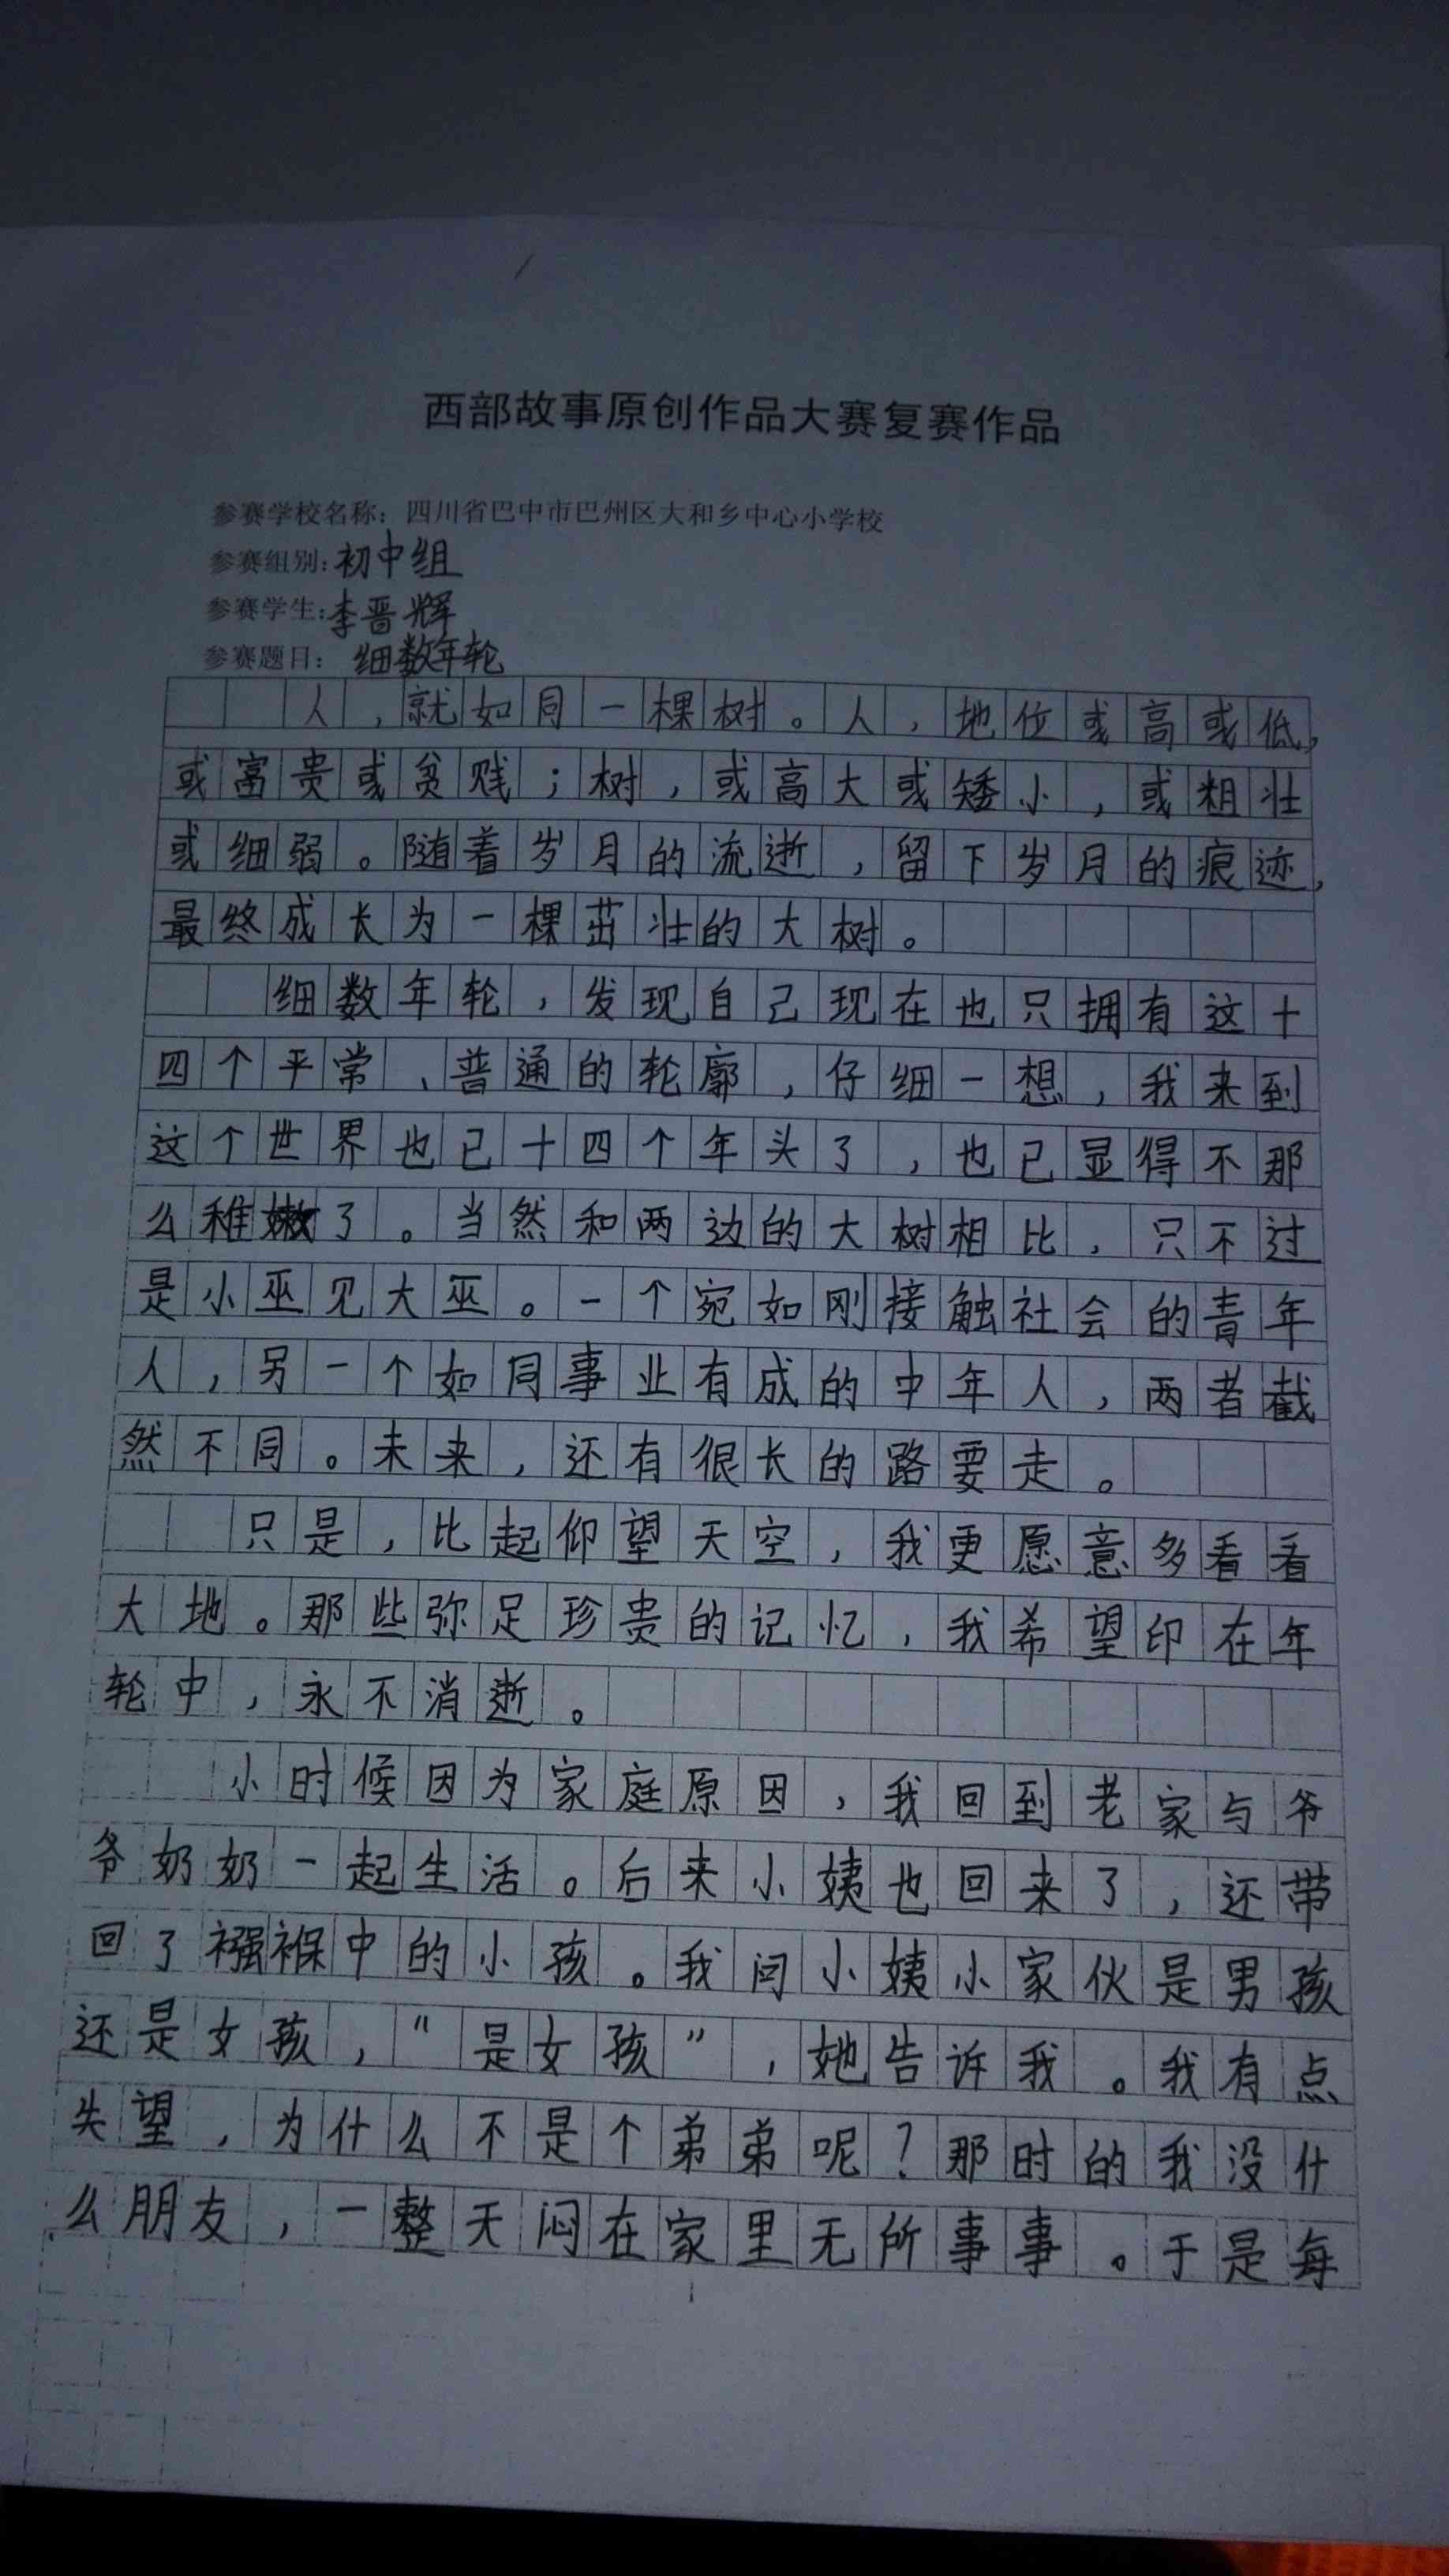 西部故事原创作品大赛复赛作品
参赛学校名称：四川省巴中市巴州区大和乡中心小学校
参赛组别：初中组
参赛学生：李晋辉
参赛题目：细数年轮
人，就如同一棵树。人，地位或高或低，
或富贵或贫贱；树，或高大或矮小，或粗壮
或细弱。随着岁月的流逝，留下岁月的痕迹，
最终成长为一棵茁壮的大树。
细数年轮，发现自己现在也只拥有这十
四个平常、普通的轮廓，仔细一想，我来到
这个世界也已十四个年头了，也已显得不那
么稚嫩了。当然和两边的大树相比，只不过
是小巫见大巫。一个宛如刚接触社会的青年
人，另一个如同事业有成的中年人，两者截
然不同。未来，还有很长的路要走。
只是，比起仰望天空，我更愿意多看看
大地。那些弥足珍贵的记忆，我希望印在年
轮中，永不消逝。
小时候因为家庭原因，我回到老家与爷
爷奶奶一起生活。后来小姨也回来了，还带
回了襁褓中的小孩。我问小姨小家伙是男孩
还是女孩，“是女孩”，她告诉我。我有点
失望，为什么不是个弟弟呢？那时的我没什
么朋友，一整天闷在家里无所事事。于是每